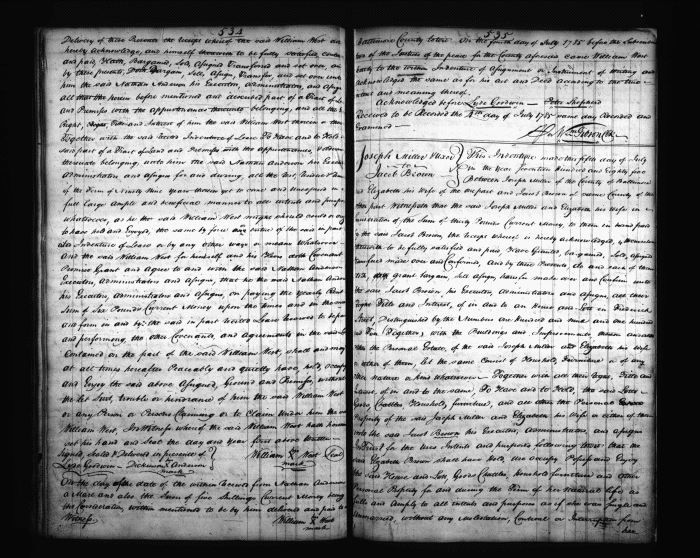 534
Delivery of these Presents the receipt whereof the said William West doth
hereby Acknowledge, and himself therewith to be fully satisfied, contented
and paid, Hath, Bargained, Sold, Assigned Transferred and set over, and
by these presents, Doth Bargain, Sell, Assign, Transfer, and set over unto
him the said Nathan Anderson his Executors, Administrators, and Assigns
all that the herein before mentioned and described part of a Tract of Land
and Premises with the appurtenances thereunto belonging, and all the Estate
Right, Title and Interest of him the said William West therein or thereto
Together with the said recited Indenture of Lease To Have and to Hold the
said part of a Tract of Land and Premises with the appurtenances,
thereunto belonging, unto him the said Nathan Anderson his Executors
Administrators and Assigns for and during, all the rest Residue
of the Term of Ninety Nine Years therein yet to come and unexpired in
full large Ample and beneficial manner to all intents and purposes
whatsoever, as he the said William West might should could or ought
to have held and Enjoyed, the same by force and virtue of the said in part
Indenture of Lease or by any other ways or means Whatsoever
And the said William West for himself and his Heirs doth Covenant
Promise Grant and Agree to and with the said Nathan Anderson
Executors, Administrators and Assigns, that he the said Nathan
his Executors, Administrators and Assigns, on paying the Yearly Rent
Sum of Six Pounds Current Money upon the times and in the manner
and form in and by the said in part recited Lease
and performing, the other Covenants, and Agreements in the said Lease
Contained on the part of the said William West, shall and may
at all times hereafter Peaceably and quietly have, hold, occupy
and Enjoy the said above Assigned, Ground and Premises, without
the let Suit, trouble or hindrance of him the said William West
or any Person or Persons Claiming or to Claim Under him the said
William West, In Witness whereof the said William West hath hereunto
set his hand and Seal the day and Year first above Written
Signed, Sealed & Delivered in presence of
Lyde Goodwin Dickinson Anderson
William West Seal
mark
On the day of the date of the within Received from Nathan Anderson
also the Sum of five Shillings Current Money being
the Consideration within mentioned to be by him delivered and paid to
Witness
William West
mark
535
Baltimore County to wit. On the fourth day of July 1785 before the Subscriber
one of the Justices of the peace for the County aforesaid came William West
party to the within Indenture of Assignment or Instrument of Writing and
Acknowledged the same as for his act and Deed according to the true
intent and meaning thereof.
Acknowledged before Lyde Goodwin Peter Shepherd
Received to be Recorded the 4th day of July 1785 same day Recorded and
Examined
Wm Gibson Clk
Joseph Miller Uxor
to
Jacob Brown
This Indenture made this fifth day of July
in the Year Seventeen hundred and Eighty five
Between Joseph Miller of the County of Baltimore
and Elizabeth his Wife of the one part and Jacob Brown of same County of the
other part Witnesseth that the said Joseph Miller and Elizabeth his Wife in
consideration of the Sum of thirty Pounds Current Money to them in hand paid
by the said Jacob Brown, the Receipt whereof is hereby acknowledged,
therewith to be fully satisfied and paid, Have Granted, bargained, Sold, Assigned
Transferred made over and Confirmed, and by these Presents, do and each of them
doth, grant bargain, sell assign transfer make over and Confirm unto
the said Jacob Brown, his Executors Administrators and Assigns all their
Right Title and Interest, of in and to an House and Lott on Frederick
Street, Distinguished by the Numbers one hundred and Nine and one hundred
and Ten Together, with the Buildings and Improvements thereon
Also the Personal Estate, of the said Joseph Miller and Elizabeth his Wife
or either of them, let the same Consist of Household, Furniture or of any
other nature or kind whatsoever. Together with all their Right, Title and
Interest, of in and to the same, To Have and to Hold, the said
Goods, Chattles Household, furniture, and all other the Personal
Property of the said Joseph Miller and Elizabeth his Wife or either of them
unto the said Jacob Brown his Executors, Administrators, and Assigns
In Trust for the Uses Intents and purposes following to wit: that the
said Elizabeth Brown shall have Hold, Use occupy Possess and Enjoy
the said House and Lott, Goods Chattles, household furniture and other
Personal Property for and during the Term of her Natural life, as
fully and Amply to all intents and purposes as if she was Single and
Unmarried, without any Molestation, Controul or Interruption from
her